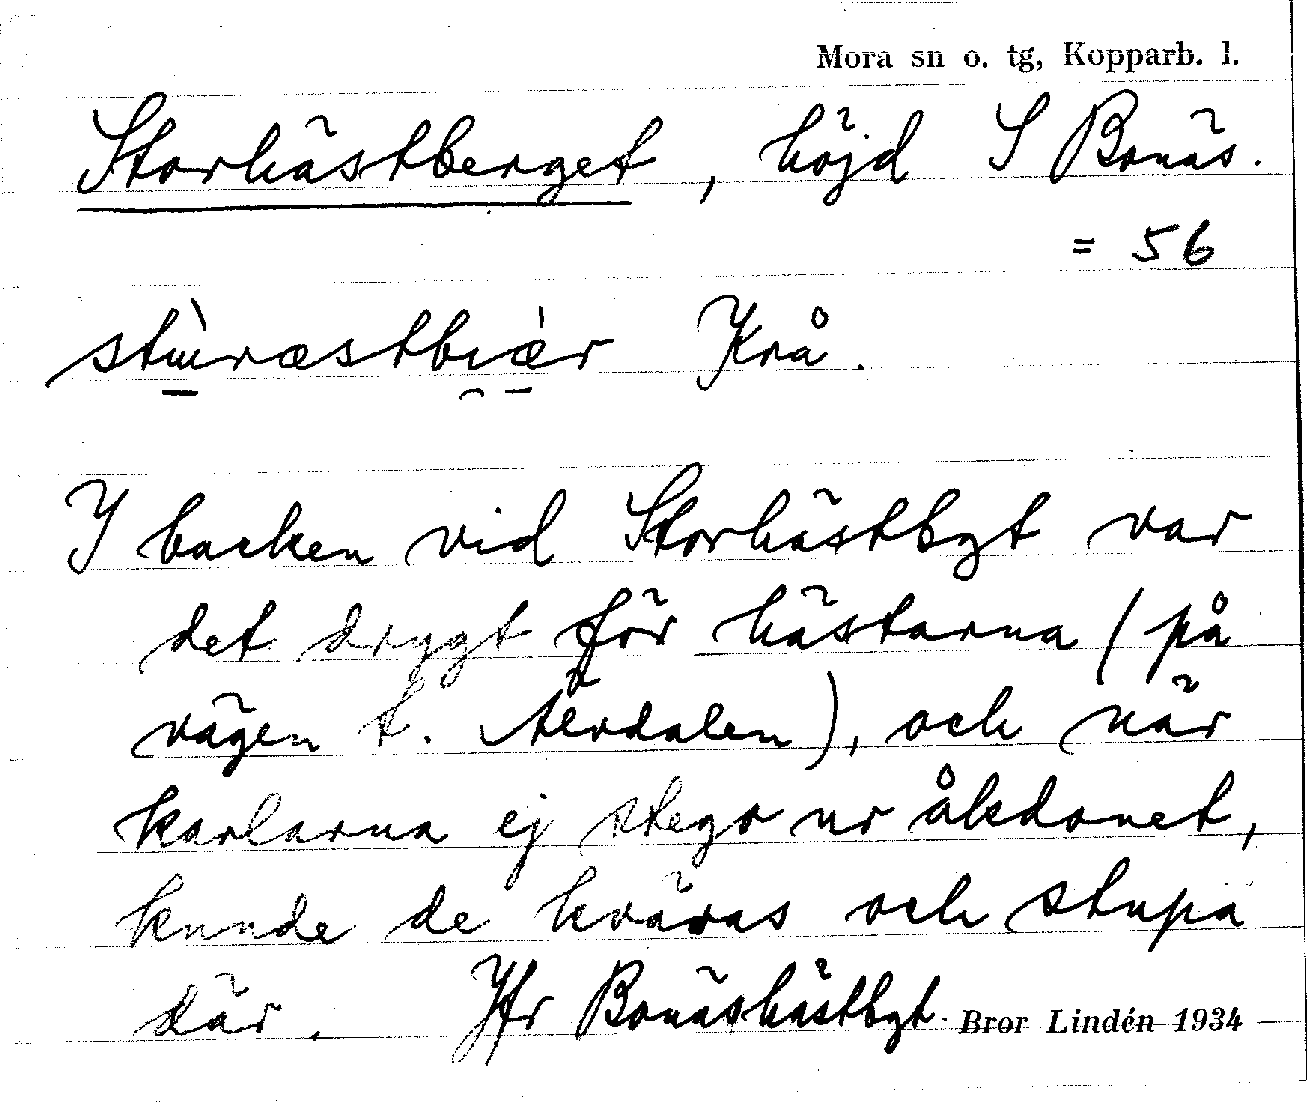 Mora sn o. tg, Kopparb. l.
Storhästberget, höjd S Bonäs.
= 56
Krå.
I backen vid Storhästbgt var
det drygt för hästarna (på
vägen t. Älvdalen), och när
karlarna ej stego ur åkdonet,
kunde de kvävas och stupa
där. Jfr Bonäshästbgt. Bror Lindén 1934